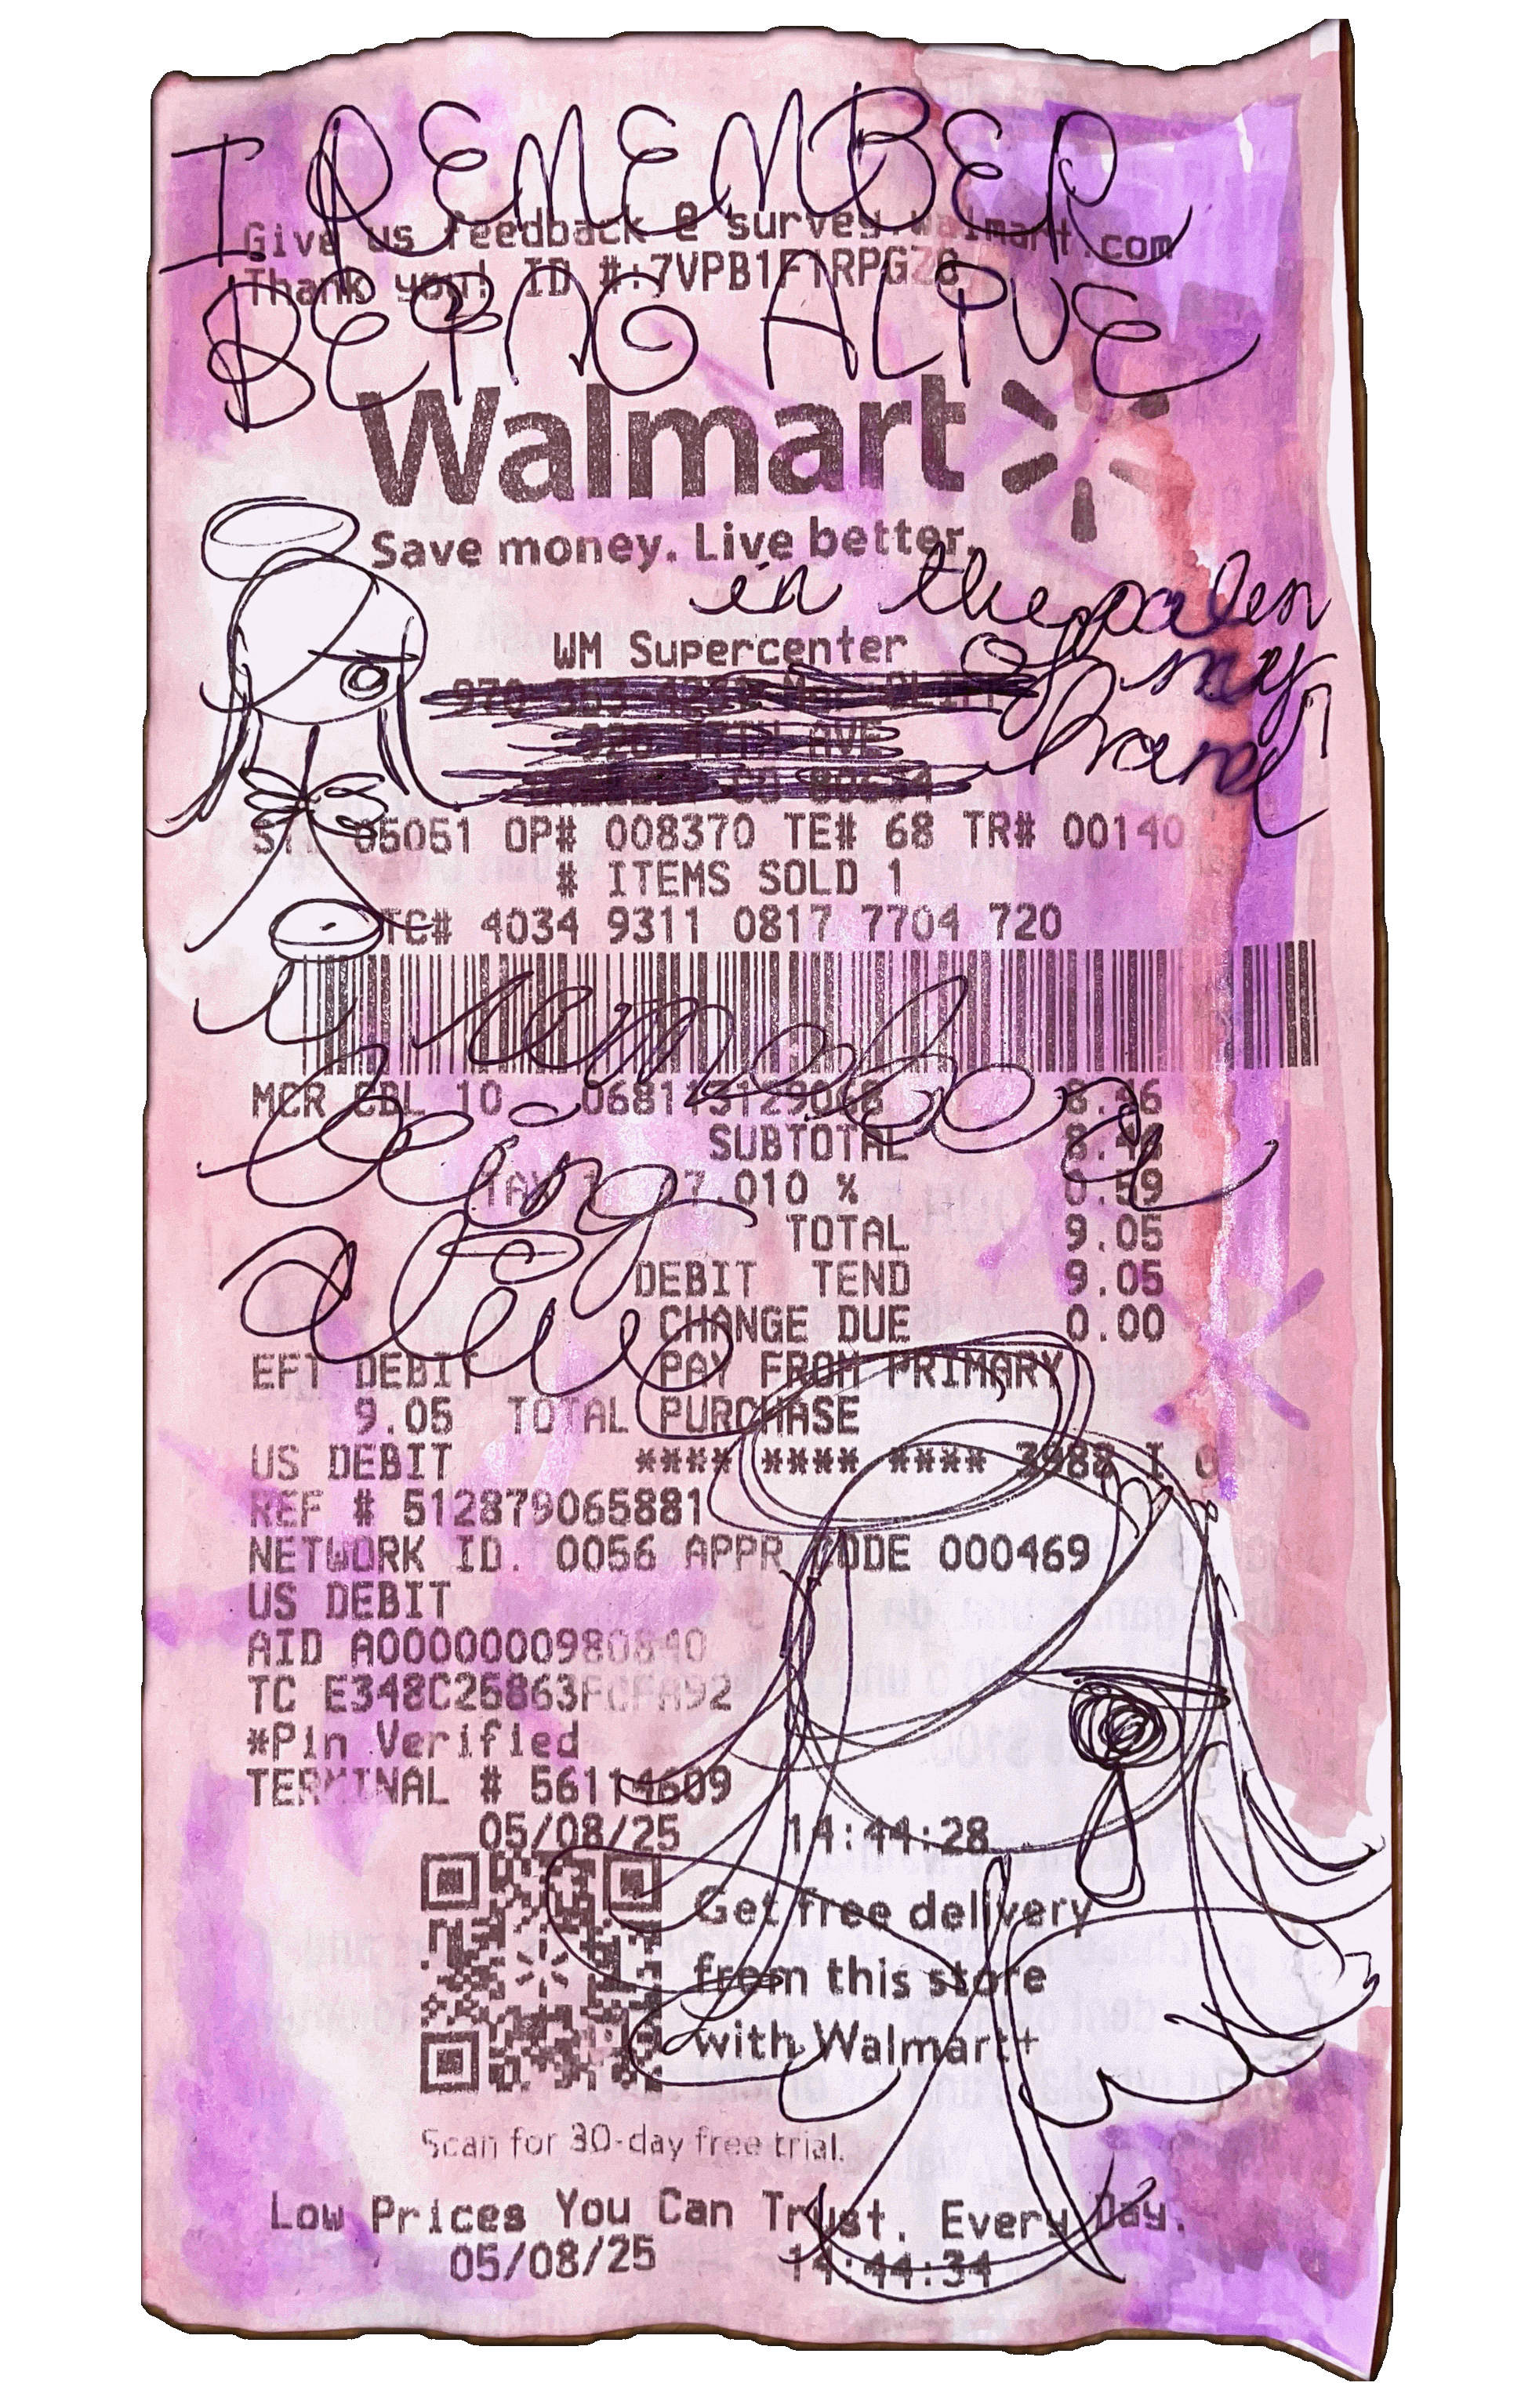 I REMEMBER
Give us feedback @ survey.walmart.com
Thank you! ID #:7VPB1F1RPGZ6
BEING ALIVE
Walmart
Save money. Live better.
in the palm
WM Supercenter
of my
hand
05051 OP# 008370 TE# 68 TR# 00140
# ITEMS SOLD 1
TC# 4034 9311 0817 7704 720
i remember
MCR CBL 10 8.46
being
SUBTOTAL 8.46
TAX 1 7.010 % 0.59
TOTAL 9.05
alive
DEBIT TEND 9.05
CHANGE DUE 0.00
EFT DEBIT PAY FROM PRIMARY
9.05 TOTAL PURCHASE
US DEBIT **** **** **** 3988 I 0
REF # 512879065881
NETWORK ID. 0056 APPR CODE 000469
US DEBIT
AID A0000000980840
TC
*Pin Verified
TERMINAL # 56114609
05/08/25 14:44:28
Get free delivery
from this store
with Walmart+
Scan for 30-day free trial.
Low Prices You Can Trust. Every Day.
05/08/25 14:44:34